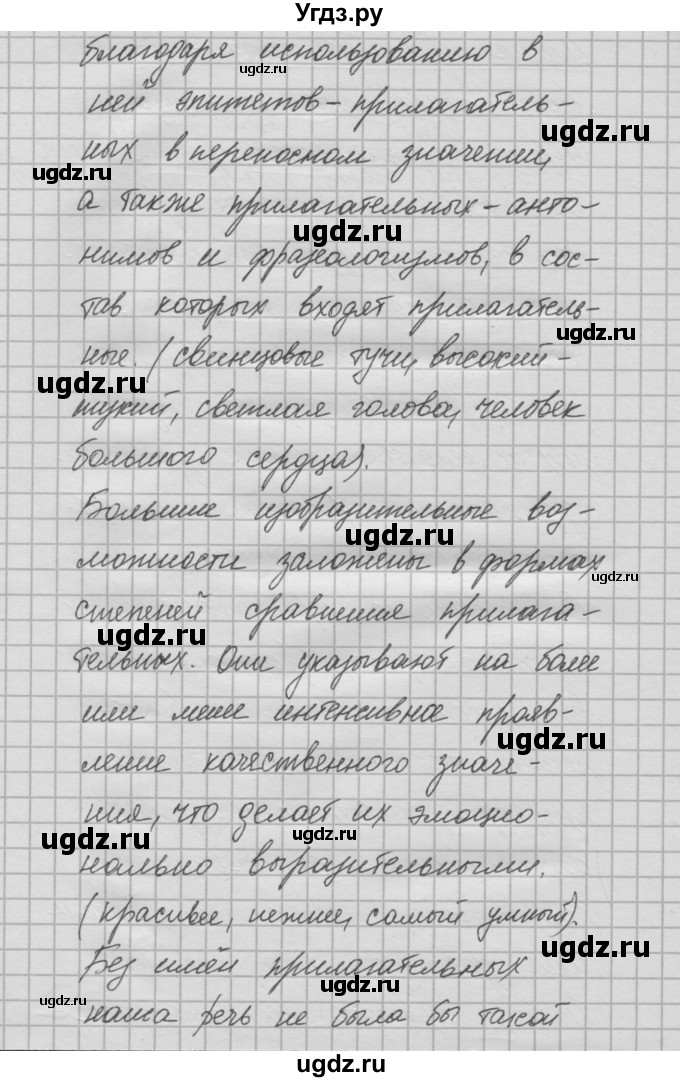 Угдз.ру
благодаря использованию в
ней эпитетов - прилагатель-
ных в переносном значении,
а также прилагательных - анто-
нимов и фразеологизмов, в сос-
тав которых входят прилагатель-
ные. (свинцовые тучи, высокий -
тихий, светлая голова, человек
большого сердца).
Большие изобразительные воз-
можности заложены в формах
степеней сравнения прилага-
тельных. Они указывают на более
или менее интенсивное прояв-
ление качественного значе-
ния, что делает их эмоцио-
нально выразительными.
(красивее, нежнее, самый умный).
Без имён прилагательных
наша речь не была бы такой
ugdz.ru